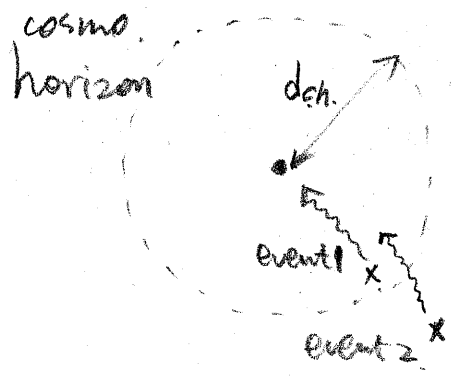 cosmo.
horizon
dc.h.
event 1
x
x
event 2.